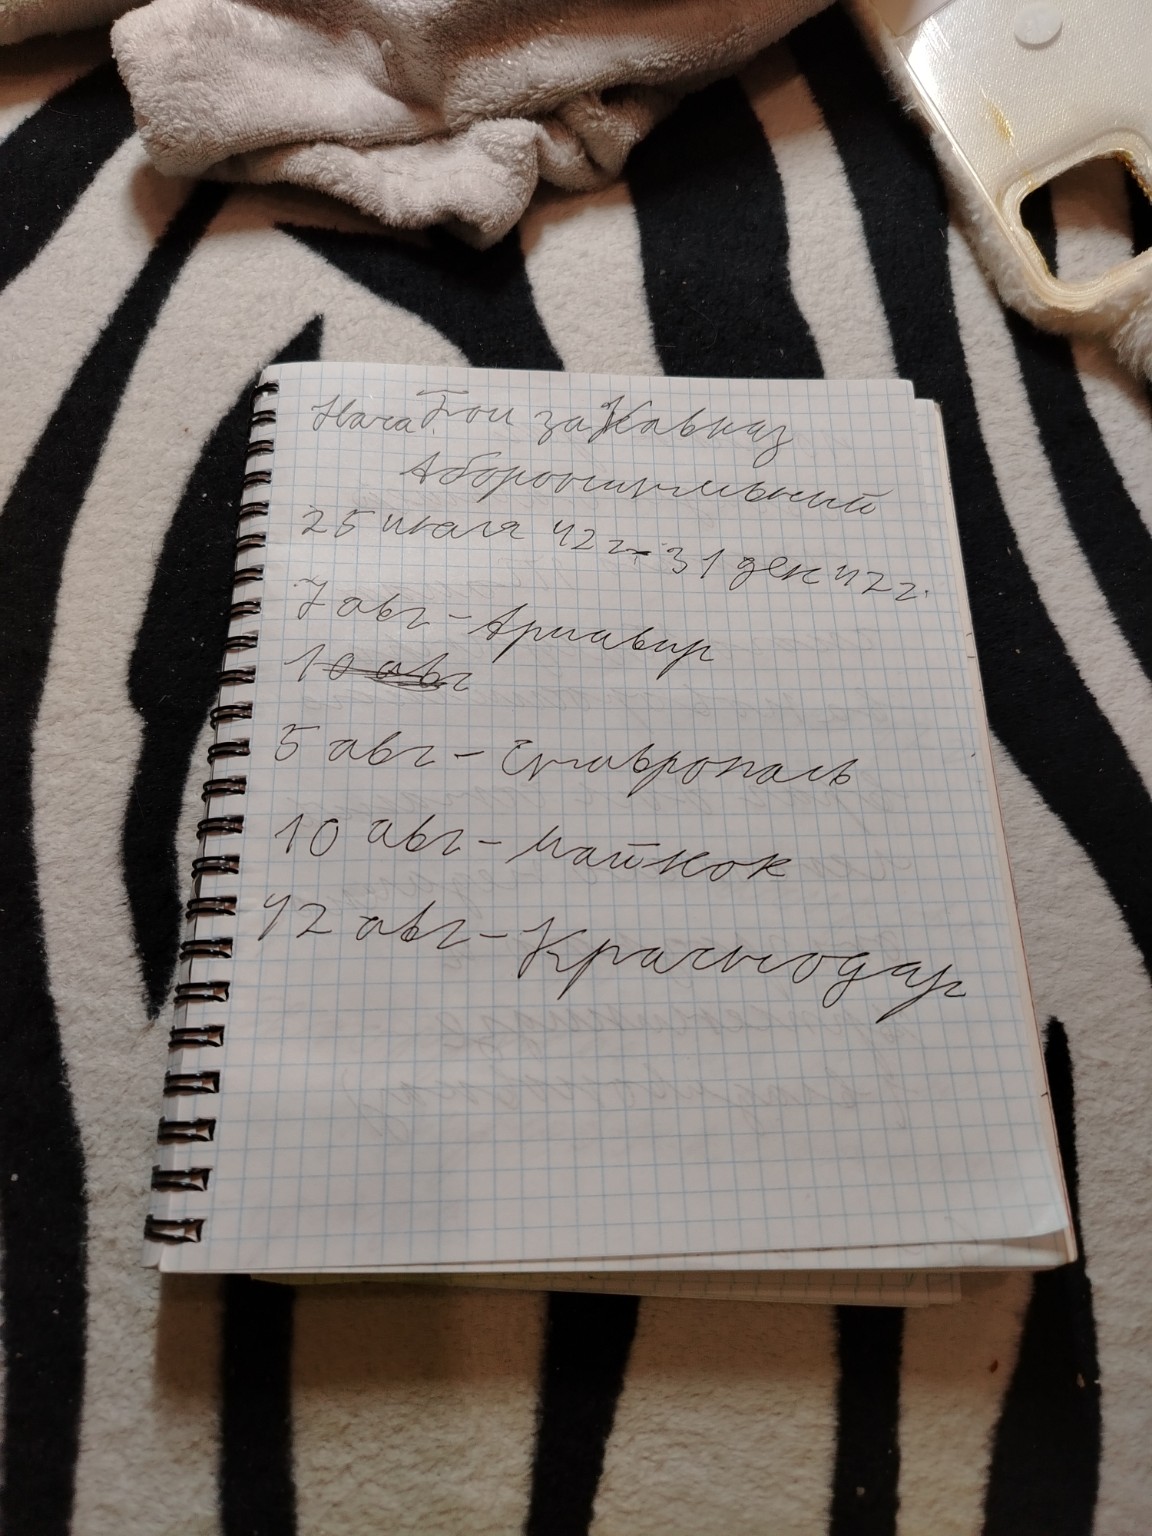 Нача Бои за Кавказ
Аборонительный
25 июля 42 г - 31 дек 42 г.
7 авг - Армавир
10 авг
5 авг - Ставрополь
10 авг - Майкок
12 авг - Краснодар